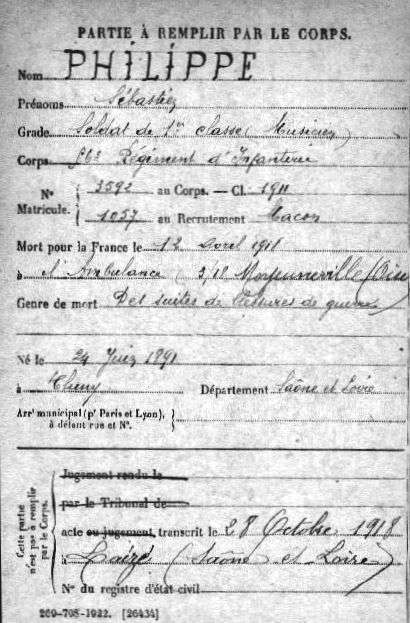 PARTIE À REMPLIR PAR LE CORPS.
Nom PHILIPPE
Prénoms Sébastien
Grade Soldat de 1re classe (Musicien)
Corps Régiment d'Infanterie
Nº Matricule. { 3592 au Corps. — Cl. 1911
1057 au Recrutement Macon
Mort pour la France le 12 avril
à l'Ambulance 3/18 (Oise)
Genre de mort Des suites de blessures de guerre
Né le 24 Juin 1891
à Cluny Département Saône et Loire
Arrt municipal (pr Paris et Lyon), à défaut rue et Nº. }
Cette partie n'est pas à remplir par le Corps.
Jugement rendu le
par le Tribunal de
acte ou jugement, transcrit le 28 Octobre 1918
à Bazé (Saône et Loire)
Nº du registre d'état civil
269-708-1922. [26434]